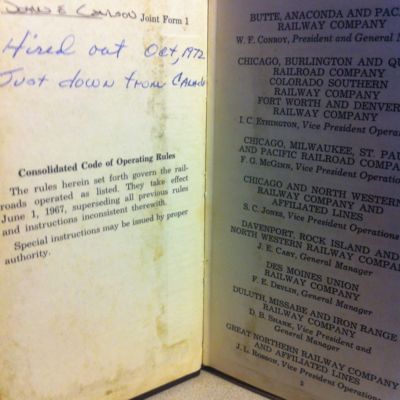 JOHN E CARLSON Joint Form 1
Hired out Oct, 1972
Just down from Canada
Consolidated Code of Operating Rules
The rules herein set forth govern the rail-
roads operated as listed. They take effect
June 1, 1967, superseding all previous rules
and instructions inconsistent therewith.
Special instructions may be issued by proper
authority.
BUTTE, ANACONDA AND PAC
RAILWAY COMPANY
W. F. CONROY, President and General M
CHICAGO, BURLINGTON AND QU
RAILROAD COMPANY
COLORADO SOUTHERN
RAILWAY COMPANY
FORT WORTH AND DENVER
RAILWAY COMPANY
I. C. ETHINGTON, Vice President Operatio
CHICAGO, MILWAUKEE, ST. PAU
AND PACIFIC RAILROAD COMPA
F. G. MCGINN, Vice President Operations
CHICAGO AND NORTH WESTER
RAILWAY COMPANY AND
AFFILIATED LINES
S. C. JONES, Vice President Operations
DAVENPORT, ROCK ISLAND AND
NORTH WESTERN RAILWAY COMPAN
J. E. CARY, General Manager
DES MOINES UNION
RAILWAY COMPANY
F. E. DEVLIN, General Manager
DULUTH, MISSABE AND IRON RANGE
RAILWAY COMPANY
D. B. SHANK, Vice President and
General Manager
GREAT NORTHERN RAILWAY COMPANY
AND AFFILIATED LINES
J. L. ROBSON, Vice President Operations
2